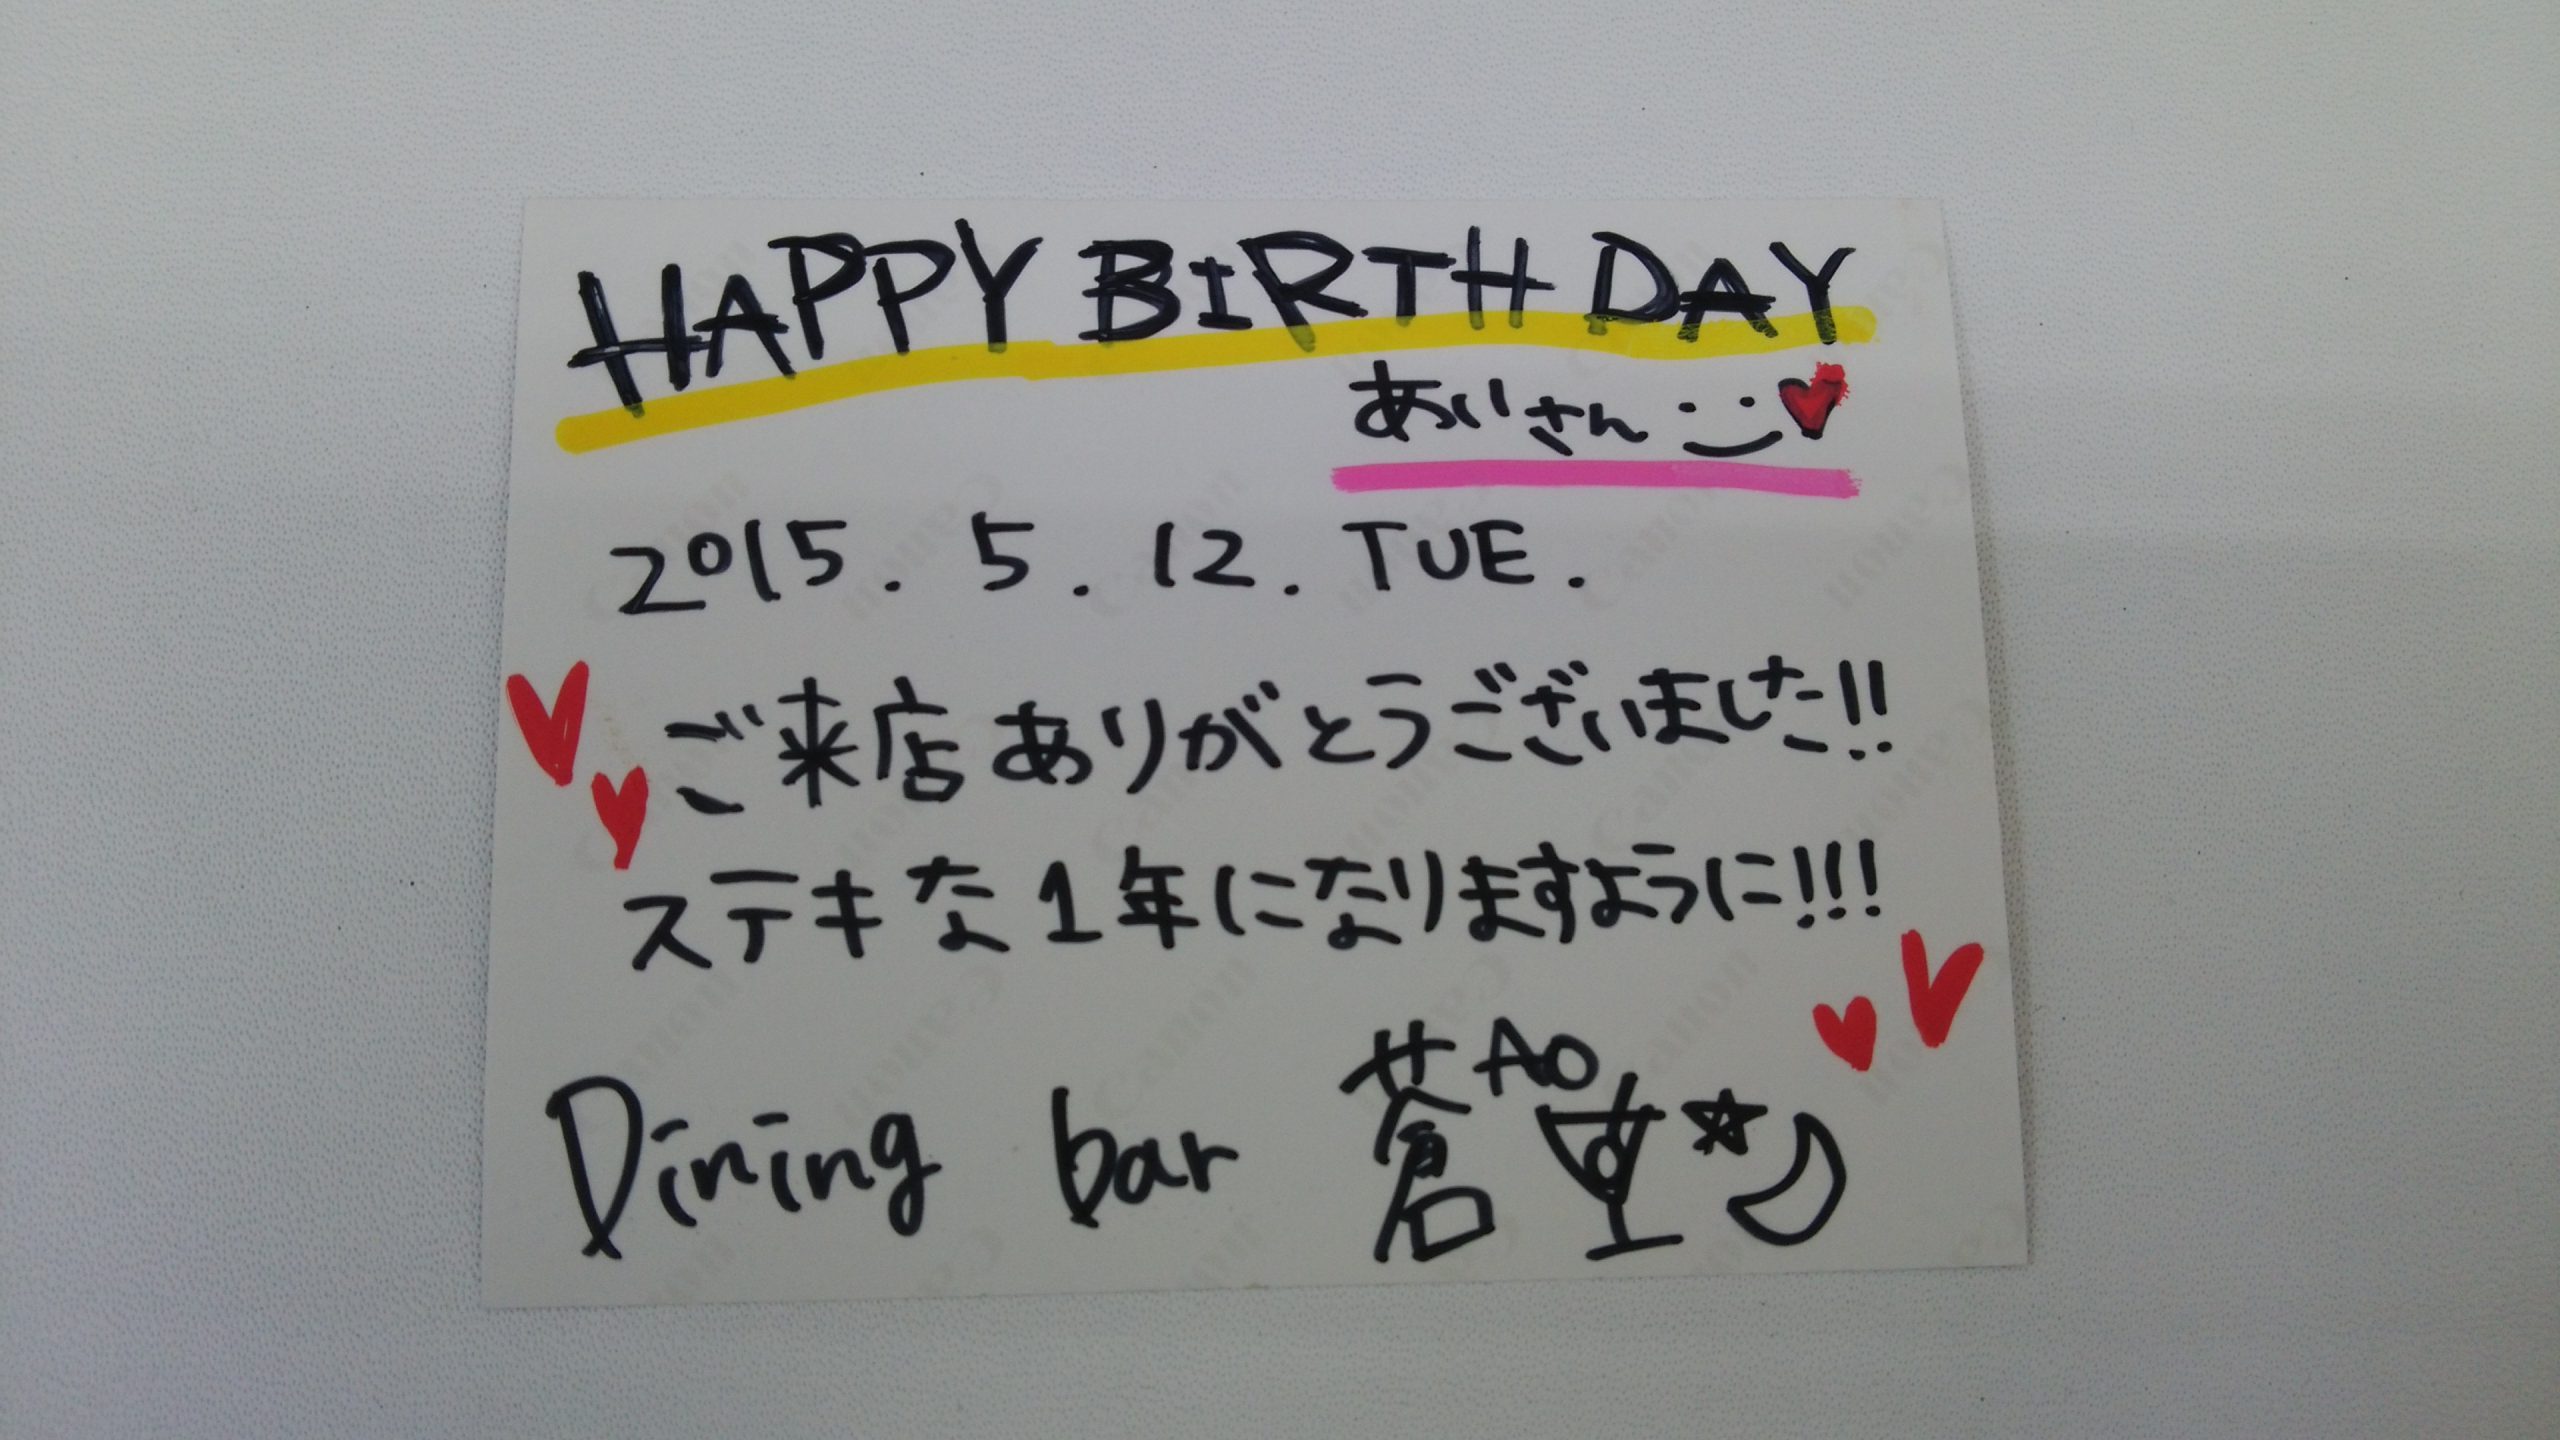 HAPPY BIRTHDAY
あいさん
2015. 5. 12. TUE.
ご来店ありがとうございました!!
ステキな1年になりますように!!!
Dining bar 蒼 AO
Canon